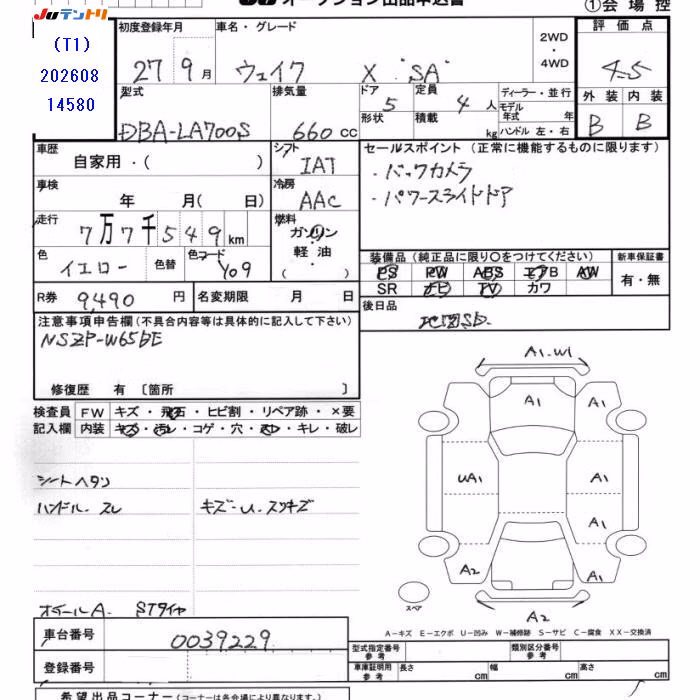 JU オークション出品申込書
①会場控
JUテントリ
(T1)
202608
14580
初度登録年月
27 9月
車名・グレード
ウェイク X "SA"
2WD
・
4WD
評価点
4.5
型式
DBA-LA700S
排気量
660 cc
ドア
5
定員
4 人
ディーラー・並行
モデル年式 年
形状
積載 kg
ハンドル 左・右
外装 内装
B B
車歴
自家用・( )
シフト
IAT
セールスポイント (正常に機能するものに限ります)
・バックカメラ
・パワースライドドア
車検
年 月( 日)
冷房
AAC
走行
7万7千549km
燃料
ガソリン
軽油
・( )
色
イエロー
色替
色コード
Y09
装備品 (純正品に限り〇をつけてください)
PS PW ABS エアB AW
SR ナビ TV カワ
新車保証書
有・無
R券 9,490 円
名変期限 月 日
後日品
地図SD.
注意事項申告欄(不具合内容等は具体的に記入して下さい)
NSZP-W65DE
修復歴 有 〔箇所 〕
検査員
記入欄
FW キズ・飛石・ヒビ割・リペア跡・×要
内装 キズ・汚レ・コゲ・穴・スレ・キレ・破レ
シートヘタリ
ハンドル.スレ
キズ-U.スリキズ
オールA. STタイヤ
A1.W1
A1
A1
UA1
A1
A1
A2
A1
A2
スペア
A-キズ E-エクボ U-凹み W-補修跡 S-サビ C-腐食 XX-交換済
車台番号 0039229
登録番号
型式指定番号
参考
類別区分番号
参考
車庫証明用
参考
長さ cm
幅 cm
高さ cm
希望出品コーナー(コーナーは各会場により異なります。)